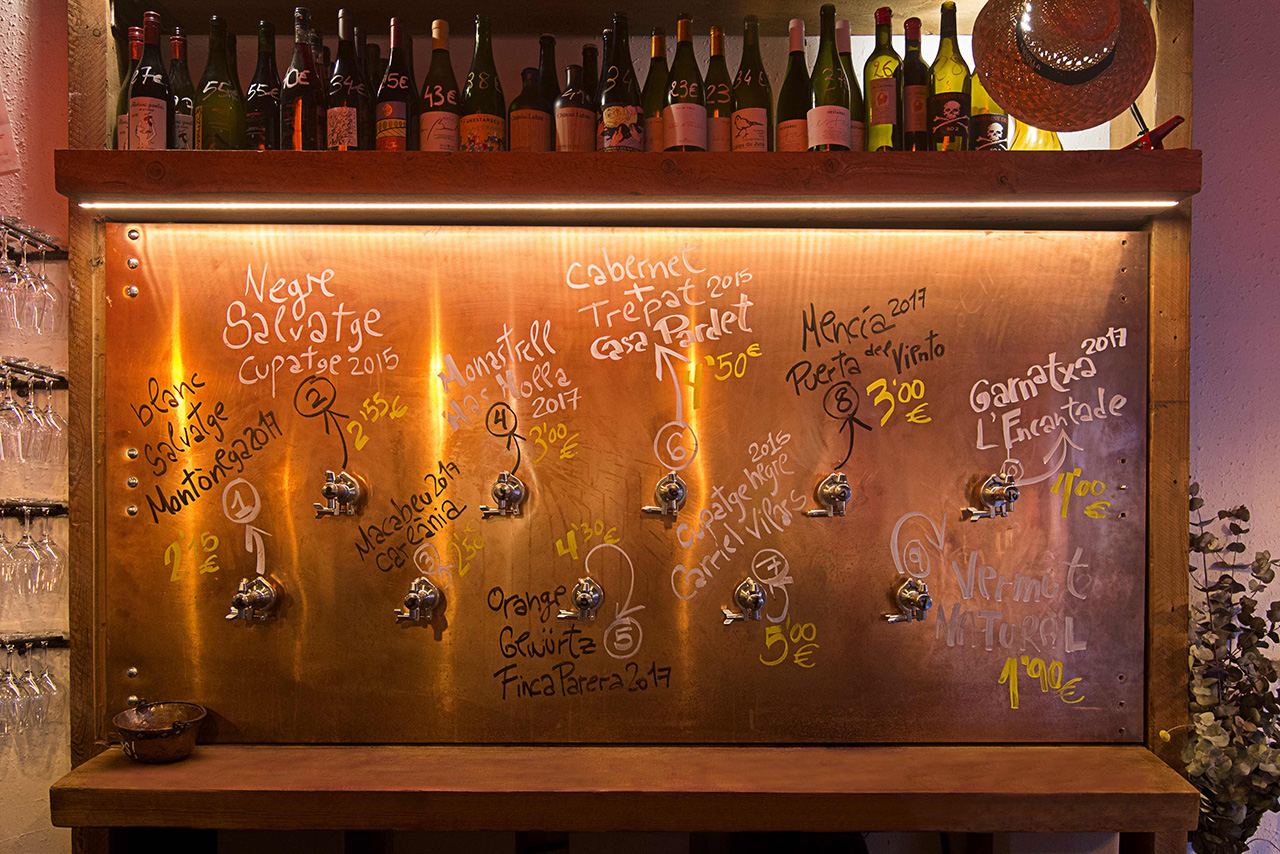 27€
55€
55€
54€
45€
43€
38€
34
23€
23
34€
26
Nº2
blanc
Salvatge
Montònega 2017
1
2'15
€
Negre
Salvatge
Cupatge 2015
2
2'55€
Macabeu 2017
careània
3
2'50
Monastrell
Mas Molla
2017
4
3'00
€
4'30€
Orange
Gewürtz
Finca Parera 2017
5
Cabernet
+
Trepat 2015
Casa Pardet
1'50€
6
2015
Cupatge negre
Carriel Vilars
7
5'00
€
Mencía 2017
Puerta del Viento
8
3'00
€
9
Vermut
NATURAL
1'90€
Garnatxa 2017
L'Encantade
4'00
€